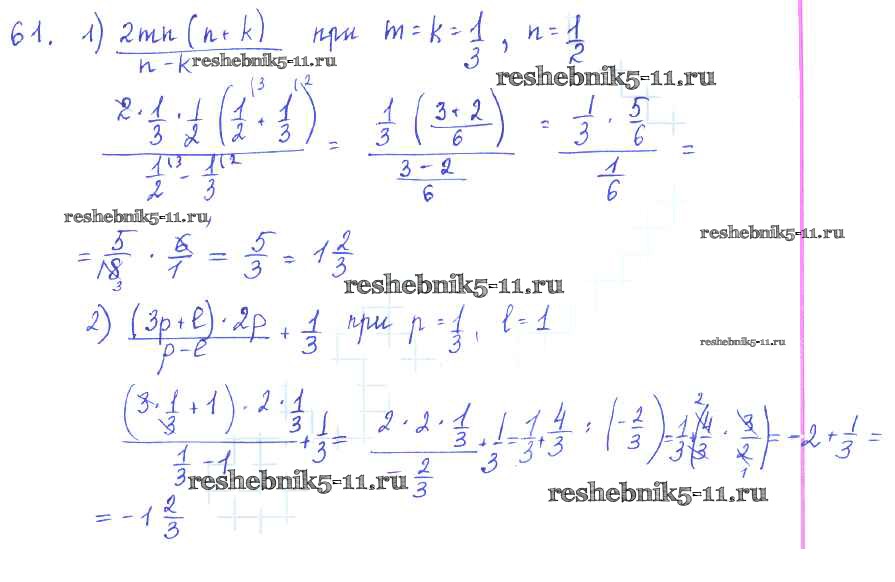 61. 1) 2mn(n+k)/(n-k) при m=k=1/3, n=1/2
reshebnik5-11.ru
reshebnik5-11.ru
(2·1/3·1/2(1/2(3+1/3(2))/(1/2(3-1/3(2) = (1/3((3+2)/6))/((3-2)/6) = (1/3·5/6)/(1/6) =
reshebnik5-11.ru
reshebnik5-11.ru
= 5/18 3·6/1 = 5/3 = 1 2/3
reshebnik5-11.ru
2) ((3p+l)·2p)/(p-l) + 1/3 при p=1/3, l=1
reshebnik5-11.ru
((3·1/3+1)·2·1/3)/(1/3-1) + 1/3 = (2·2·1/3)/(-2/3) + 1/3 = 1/3 + 4/3 : (-2/3) = 1/3 + (4 2/3·3/2 1) = -2 + 1/3 =
reshebnik5-11.ru
reshebnik5-11.ru
= -1 2/3